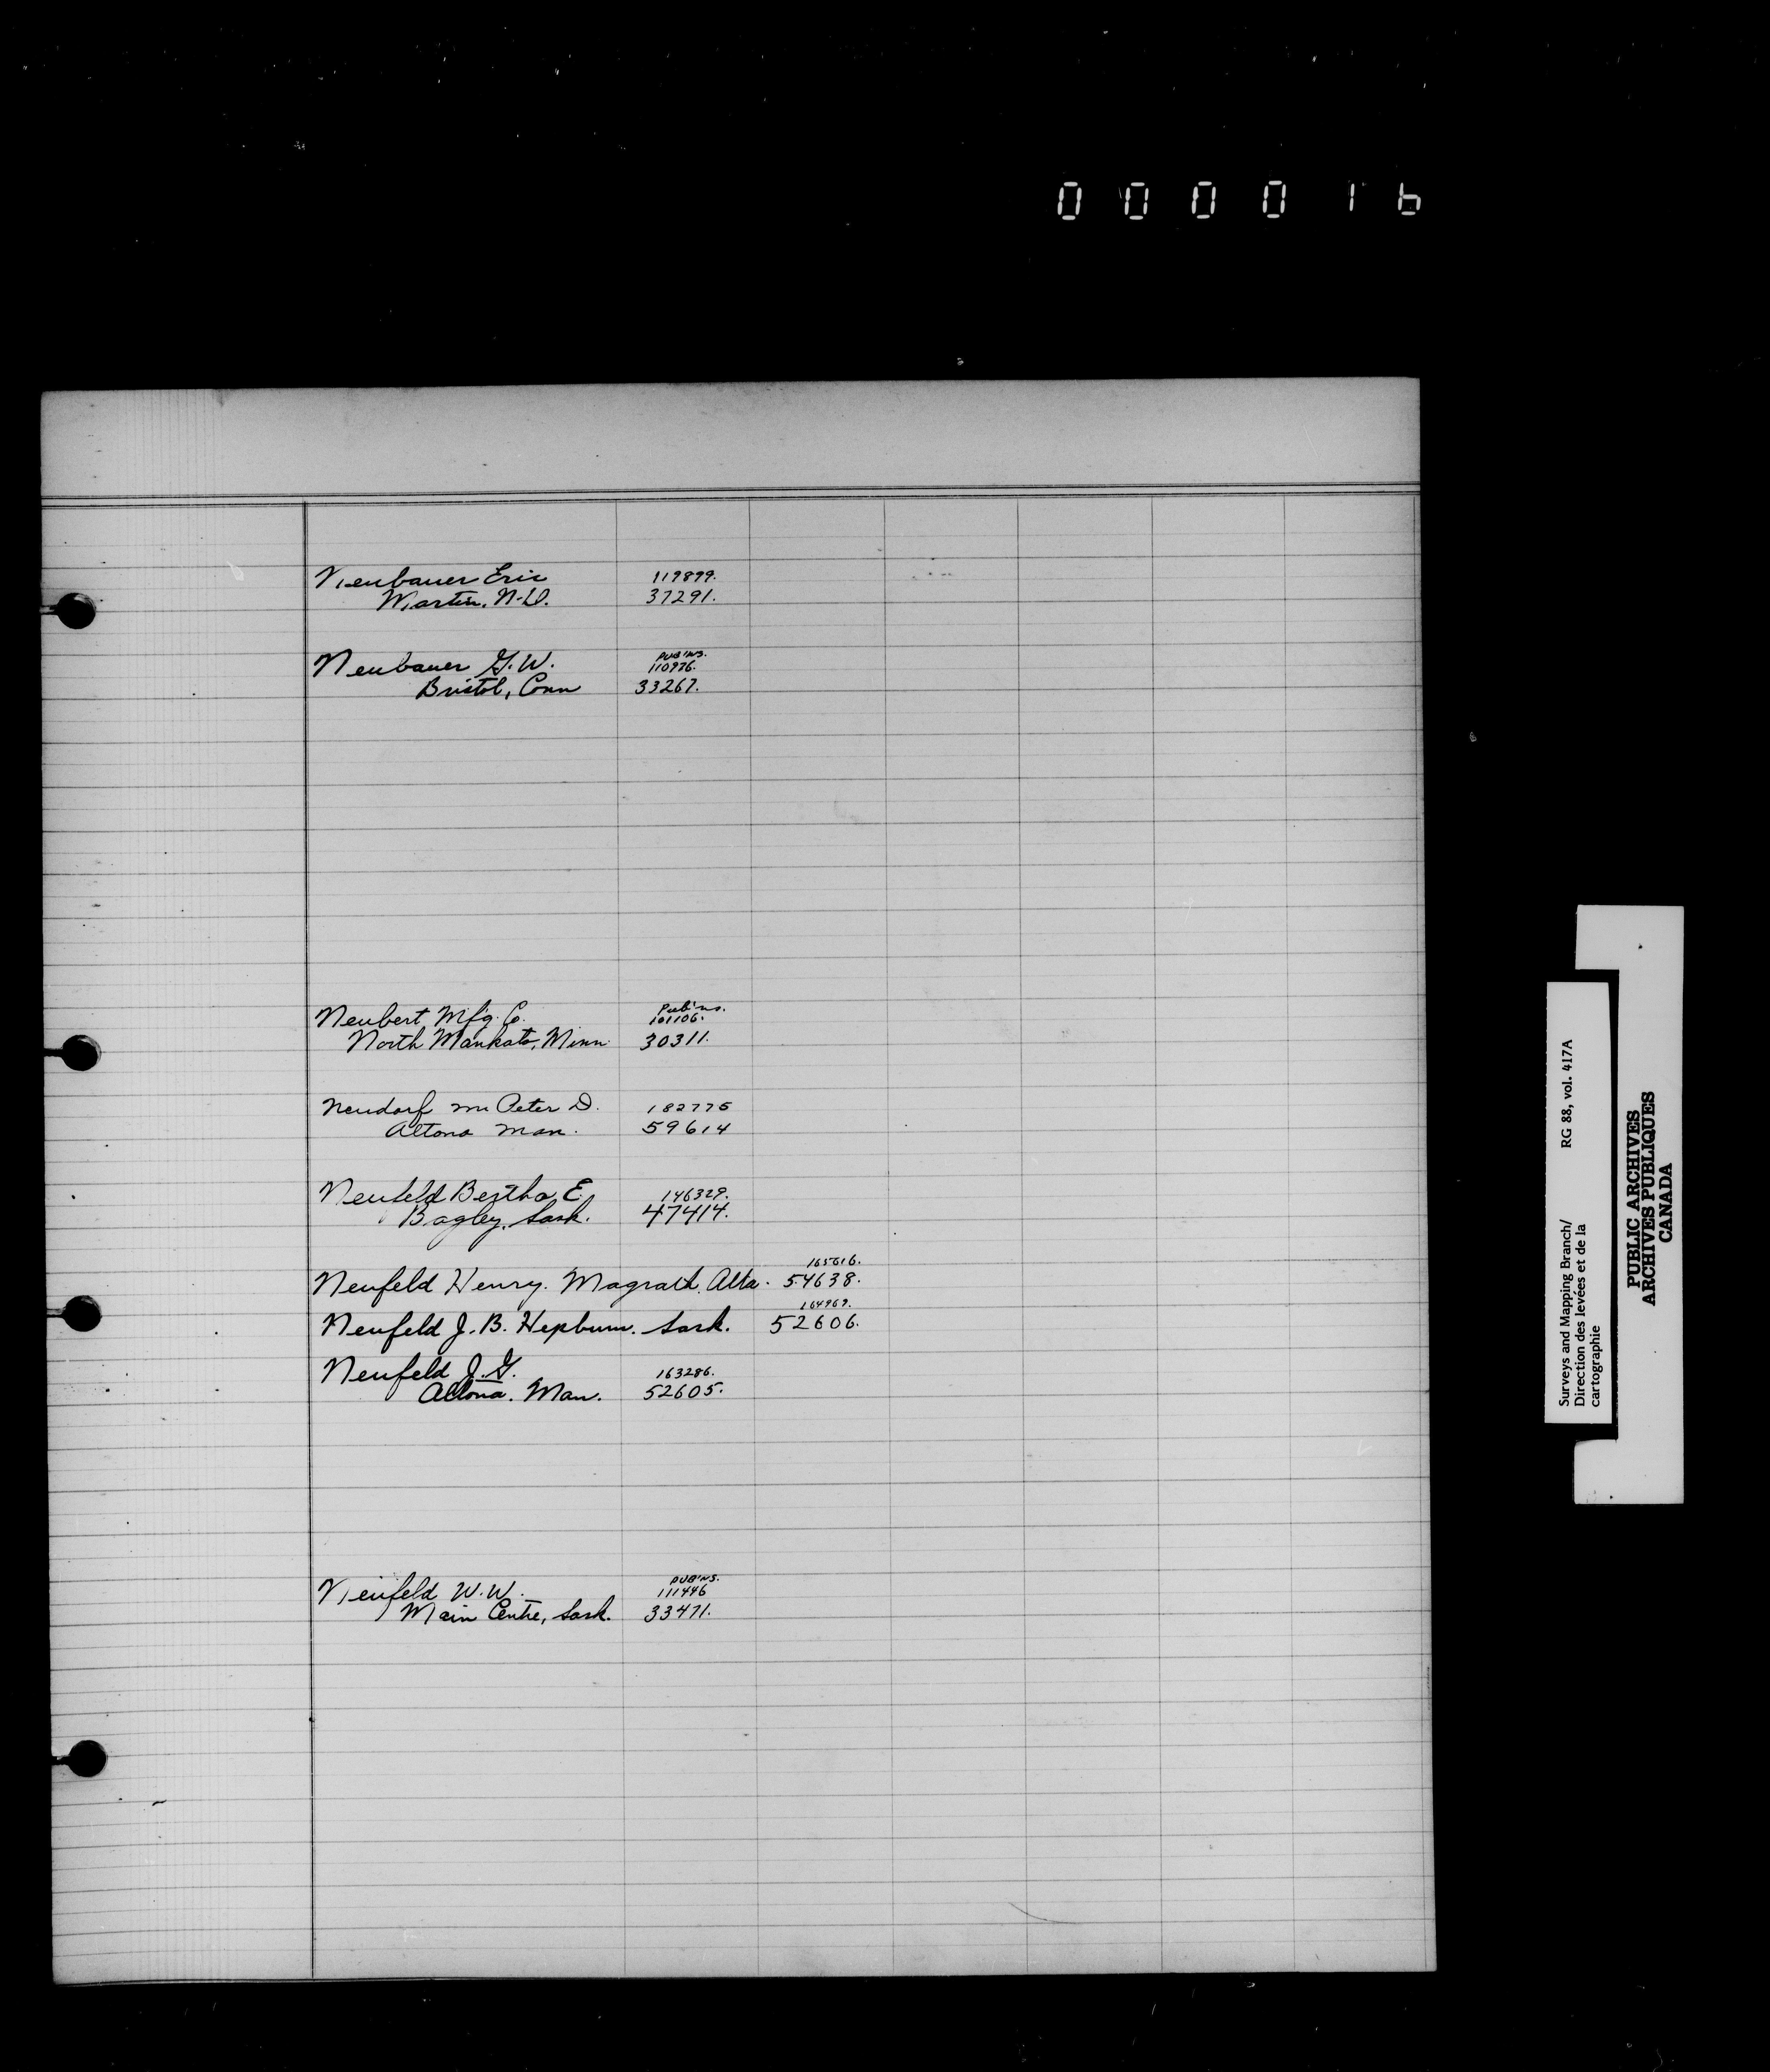 000016
Neubauer Eric 119899.
Martin, N.D. 37291.
PUB'NS.
Neubauer G.W. 110976.
Bristol, Conn 33267.
Pub'ns.
Neubert Mfg. Co. 101106.
North Mankato, Minn. 30311.
Neudorf Mr Peter D. 182775
Altona Man. 59614
Neufeld Bertha E. 146329.
Bagley, Sask. 47414.
165616.
Neufeld Henry. Magrath, Alta. 54638.
164969.
Neufeld J.B. Hepburn. Sask. 52606.
Neufeld J.G. 163286.
Altona. Man. 52605.
PUB'NS.
Neufeld W.W. 111446
Main Centre, Sask. 33471.
Surveys and Mapping Branch/ RG 88, vol. 417A
Direction des levées et de la
cartographie
PUBLIC ARCHIVES
ARCHIVES PUBLIQUES
CANADA